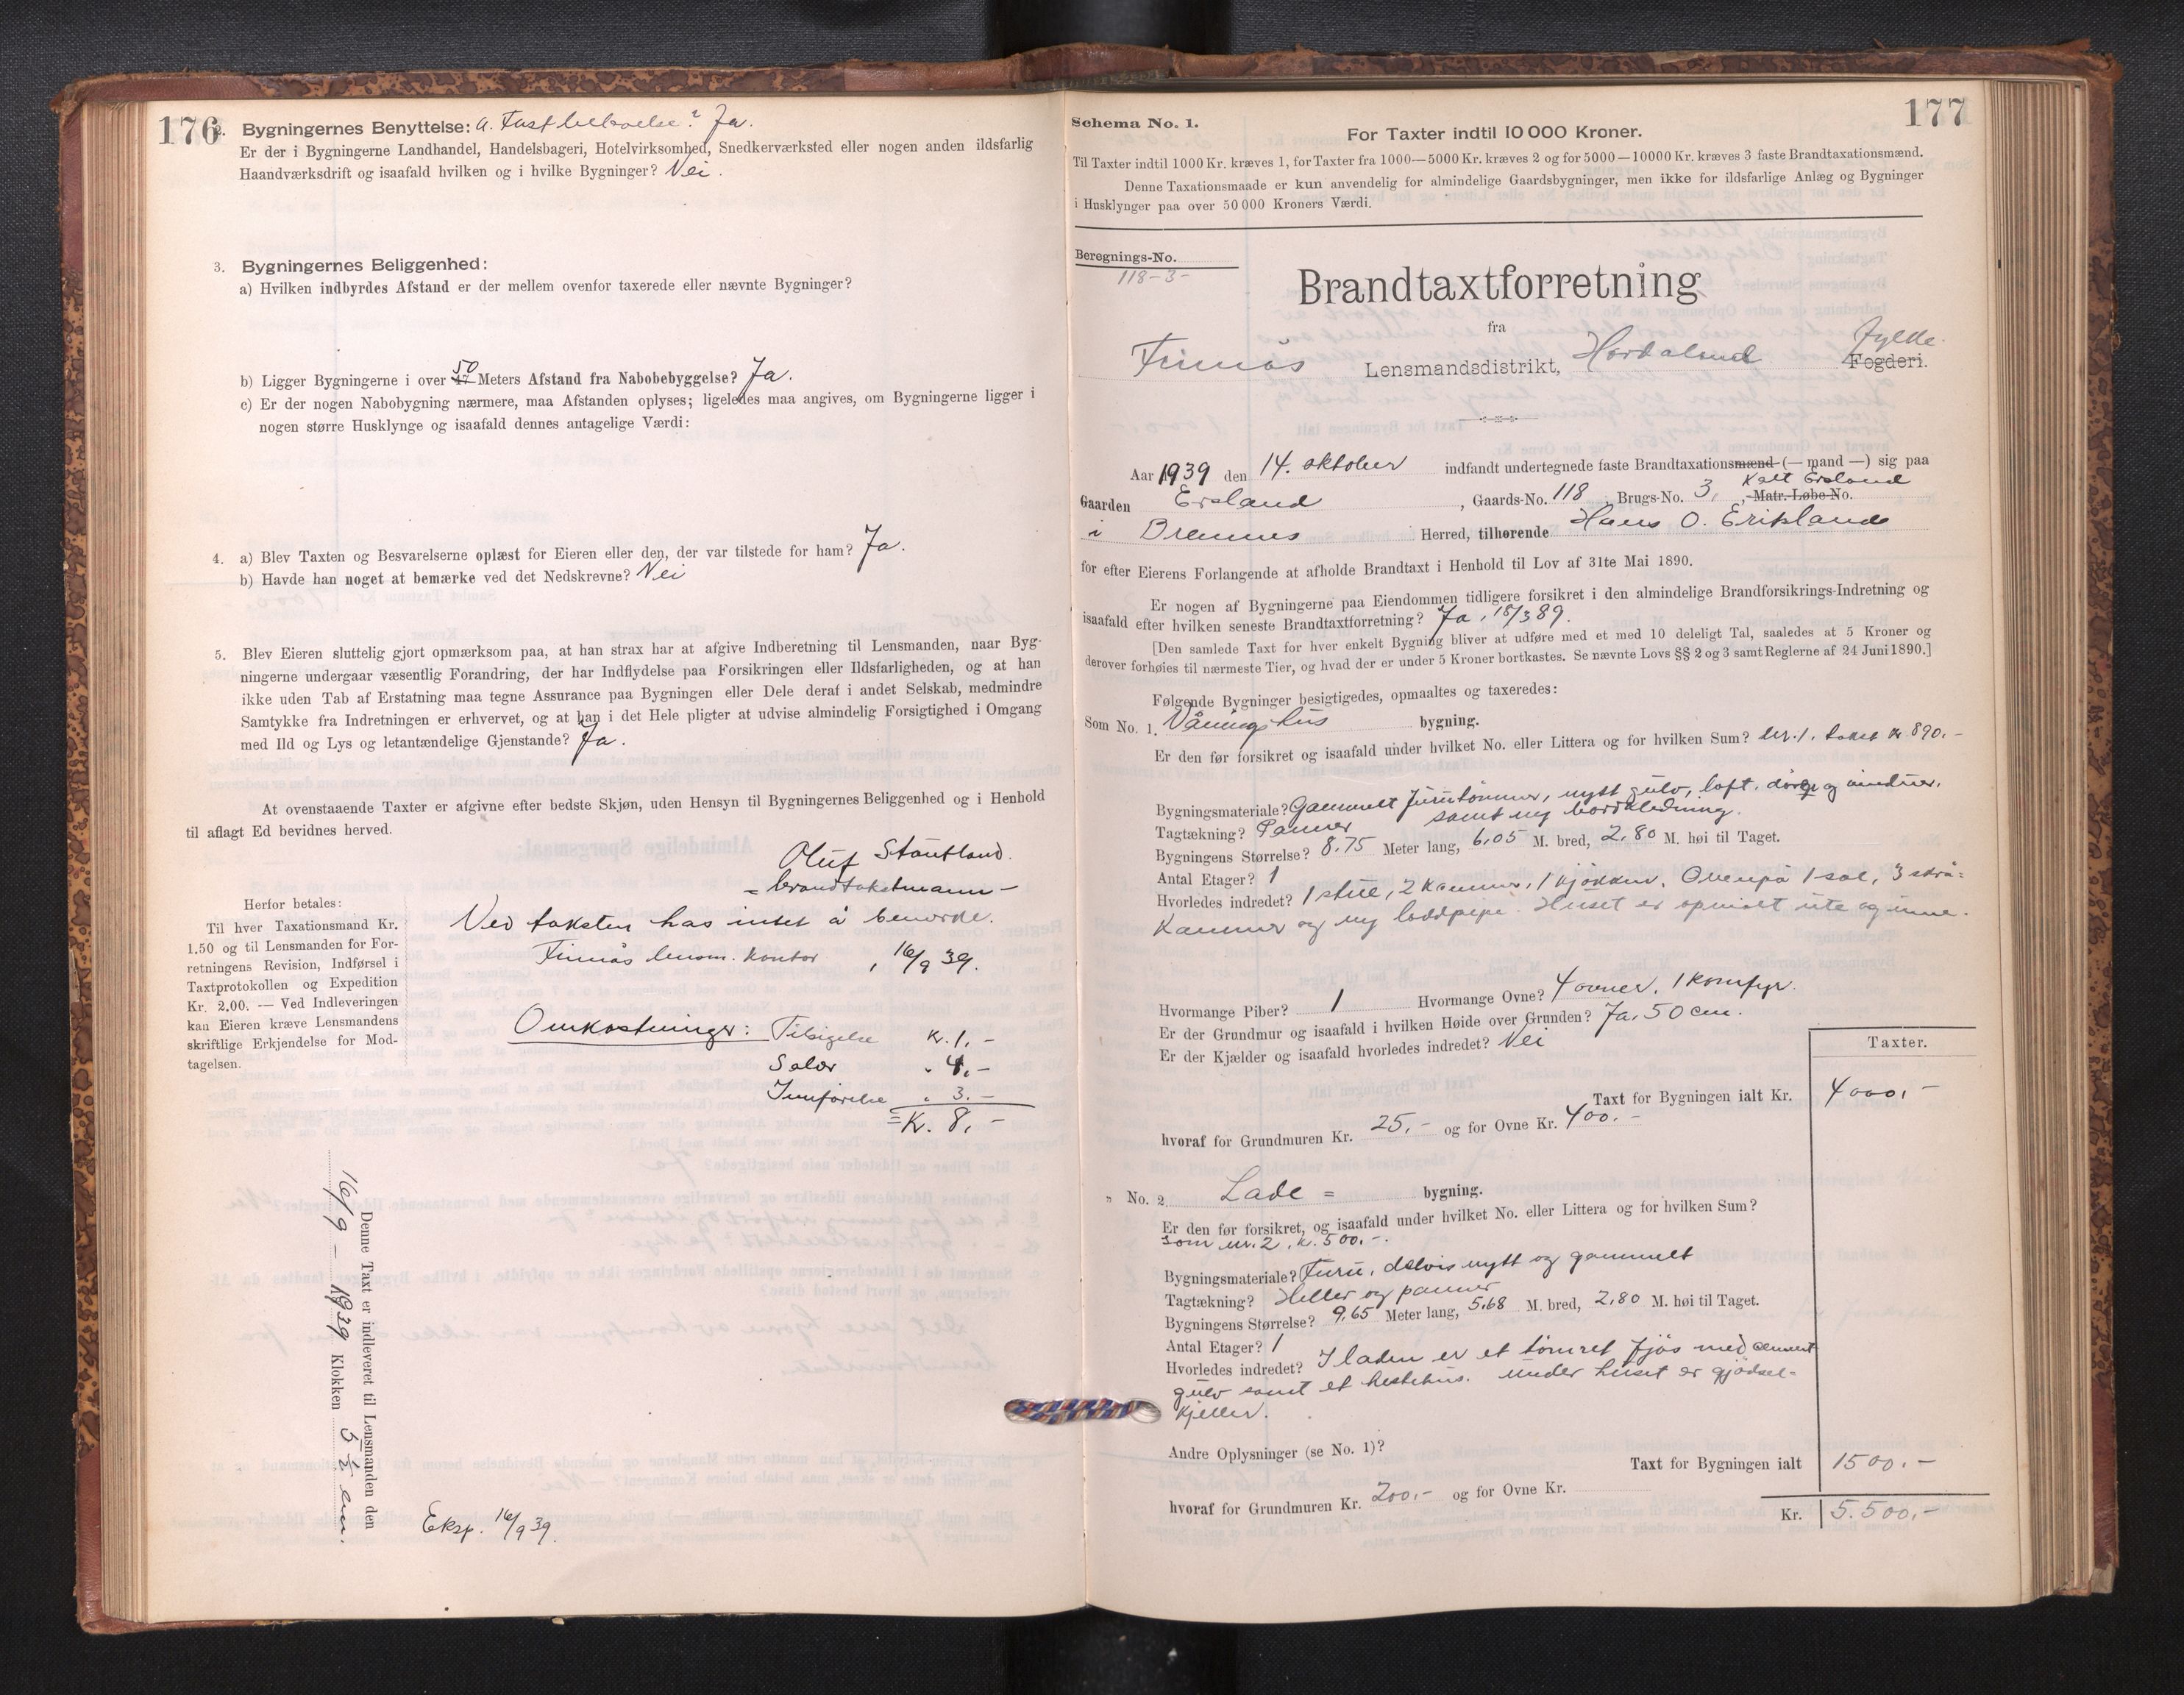 176
2. Bygningernes Benyttelse: a. Fast beboelse? Ja.
Er der i Bygningerne Landhandel, Handelsbageri, Hotelvirksomhed, Snedkerværksted eller nogen anden ildsfarlig
Haandværksdrift og isaafald hvilken og i hvilke Bygninger? Nei.
3. Bygningernes Beliggenhed:
a) Hvilken indbyrdes Afstand er der mellem ovenfor taxerede eller nævnte Bygninger?
50
b) Ligger Bygningerne i over 47 Meters Afstand fra Nabobebyggelse? Ja.
c) Er der nogen Nabobygning nærmere, maa Afstanden oplyses; ligeledes maa angives, om Bygningerne ligger i
nogen større Husklynge og isaafald dennes antagelige Værdi:
4. a) Blev Taxten og Besvarelserne oplæst for Eieren eller den, der var tilstede for ham? Ja.
b) Havde han noget at bemærke ved det Nedskrevne? Nei
5. Blev Eieren sluttelig gjort opmærksom paa, at han strax har at afgive Indberetning til Lensmanden, naar Byg-
ningerne undergaar væsentlig Forandring, der har Indflydelse paa Forsikringen eller Ildsfarligheden, og at han
ikke uden Tab af Erstatning maa tegne Assurance paa Bygningen eller Dele deraf i andet Selskab, medmindre
Samtykke fra Indretningen er erhvervet, og at han i det Hele pligter at udvise almindelig Forsigtighed i Omgang
med Ild og Lys og letantændelige Gjenstande? Ja.
At ovenstaaende Taxter er afgivne efter bedste Skjøn, uden Hensyn til Bygningernes Beliggenhed og i Henhold
til aflagt Ed bevidnes herved.
Oluf Stautland.
= brandtakstmann -
Herfor betales:
Til hver Taxationsmand Kr.
1.50 og til Lensmanden for For-
retningens Revision, Indførsel i
Taxtprotokollen og Expedition
Kr. 2.00. — Ved Indleveringen
kan Eieren kræve Lensmandens
skriftlige Erkjendelse for Mod-
tagelsen.
Ved taksten has intet å bemerke.
Finnås lensm. kontor, 16/9 39.
Omkostninger: Tilsigelse Kr. 1,-
Salær " 4,-
Innførelse " 3.-
= Kr. 8,-
Denne Taxt er indleveret til Lensmanden den
16/9 - 1939 Klokken 5 1/2 em.
Eksp. 16/9 39.
177
Schema No. 1.
For Taxter indtil 10 000 Kroner.
Til Taxter indtil 1000 Kr. kræves 1, for Taxter fra 1000—5000 Kr. kræves 2 og for 5000—10000 Kr. kræves 3 faste Brandtaxationsmænd.
Denne Taxationsmaade er kun anvendelig for almindelige Gaardsbygninger, men ikke for ildsfarlige Anlæg og Bygninger
i Husklynger paa over 50 000 Kroners Værdi.
Beregnings-No.
118-3-
Brandtaxtforretning
fra
Finnås Lensmandsdistrikt, Hordaland Fylke. Fogderi.
Aar 1939 den 14. oktober indfandt undertegnede faste Brandtaxationsmænd (— mand —) sig paa
Gaarden Ersland, Gaards-No. 118, Brugs-No. 3, kalt Ersland Matr.-Løbe-No.
i Bremnes Herred, tilhørende Hans O. Erikland
for efter Eierens Forlangende at afholde Brandtaxt i Henhold til Lov af 31te Mai 1890.
Er nogen af Bygningerne paa Eiendommen tidligere forsikret i den almindelige Brandforsikrings-Indretning og
isaafald efter hvilken seneste Brandtaxtforretning? Ja, 18/3 89.
[Den samlede Taxt for hver enkelt Bygning bliver at udføre med et med 10 deleligt Tal, saaledes at 5 Kroner og
derover forhøies til nærmeste Tier, og hvad der er under 5 Kroner bortkastes. Se nævnte Lovs §§ 2 og 3 samt Reglerne af 24 Juni 1890.]
Følgende Bygninger besigtigedes, opmaaltes og taxeredes:
Som No. 1. Våningshus bygning.
Er den før forsikret og isaafald under hvilket No. eller Littera og for hvilken Sum? Nr. 1. takst kr 890.-
Bygningsmateriale? Gammelt furutømmer, nytt gulv, loft, dører og vinduer,
samt ny bordkledning.
Tagtækning? Panner
Bygningens Størrelse? 8.75 Meter lang, 6,05 M. bred, 2,80 M. høi til Taget.
Antal Etager? 1
Hvorledes indredet? 1 stue, 2 kammer, 1 kjøkken. Ovenpå 1 sal, 3 skrå=
kammer og ny loddpipe. Huset er opmalt ute og inne.
Hvormange Piber? 1 Hvormange Ovne? 4 ovner, 1 komfyr.
Er der Grundmur og isaafald i hvilken Høide over Grunden? Ja, 50 cm.
Er der Kjælder og isaafald hvorledes indredet? Nei
Taxter.
Taxt for Bygningen ialt Kr. 4000,-
hvoraf for Grundmuren Kr. 25,- og for Ovne Kr. 400.-
" No. 2 Lade = bygning.
Er den før forsikret, og isaafald under hvilket No. eller Littera og for hvilken Sum?
som nr. 2, kr. 500.-.
Bygningsmateriale? Furu, delvis nytt og gammelt
Tagtækning? Heller og panner
Bygningens Størrelse? 9,65 Meter lang, 5,68 M. bred, 2,80 M. høi til Taget.
Antal Etager? 1
Hvorledes indredet? I laden er et tømret fjøs med cement
gulv samt et hestehus. Under huset er gjødsel-
kjeller.
Andre Oplysninger (se No. 1)?
Taxt for Bygningen ialt 1500.-
hvoraf for Grundmuren Kr. 200,- og for Ovne Kr.
Kr. 5.500,-